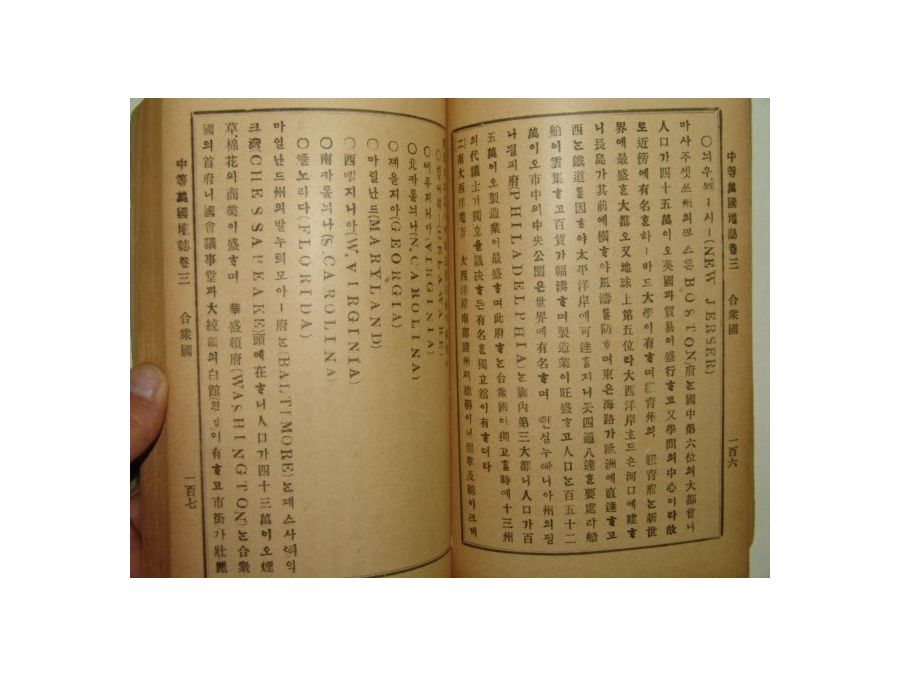 中等萬國地誌卷三　合衆國　一百六
○늬우쎄ー시ー(NEW JERSER)
마사주젯쓰州의쏘스톤(BOSTON)府는國中第六位의大都會니
人口가四十五萬이오英國과貿易이盛行ᄒᆞ고又學問의中心이라故
로近傍에有名ᄒᆞᆫ하ー바드大學이有ᄒᆞ며紐育州의紐育府는新世
界에最盛ᄒᆞᆫ大都오又地球上第五位라大西洋岸호드손河口에建ᄒᆞ
니長島가其前에橫ᄒᆞ야風濤를防ᄒᆞ며東은海路가歐洲에直達ᄒᆞ고
西는鐵道를因ᄒᆞ야太平洋岸에可達ᄒᆞᆯ지니四通八達ᄒᆞᆫ要處라船
舶이雲集ᄒᆞ고百貨가輻湊ᄒᆞ며製造業이旺盛ᄒᆞ고人口는百五十二
萬이오市中의中央公園은世界에有名ᄒᆞ며 펜실누쎄니아州의필
나델피府(PHILADELPHIA)는國內第三大都니人口가百
五萬이오製造業이最盛ᄒᆞ며此府ᄂᆞᆫ合衆國이獨立ᄒᆞᆯ時에十三州
의代議士가獨立을議決ᄒᆞ든有名ᄒᆞᆫ獨立館이有ᄒᆞ더라
(二)南大西洋地方　大西洋岸南部諸州의總稱이니烟草及綿이크게
(DELAWARE)
(VIRGINIA)
○北카롤늬나(N. CAROLINA)
○제올지아(GEORGIA)
○마릴난드(MARYLAND)
○西 지니아(W. VIRGINIA)
○南카롤늬나(S. CAROLINA)
○플노리다(FLORIDA)
마일난드州의발누틔모아ー府는(BALTIMORE)는제스사 익
크灣(CHESSAPEAKE)頭에在ᄒᆞ니人口가四十三萬이오煙
草、棉花의商業이盛ᄒᆞ며　華盛頓府(WASHINGTON)는合衆
國의首府니國會議事堂과大統領의白館 이有ᄒᆞ고市街가壯麗
中等萬國地誌卷三　合衆國　一百七